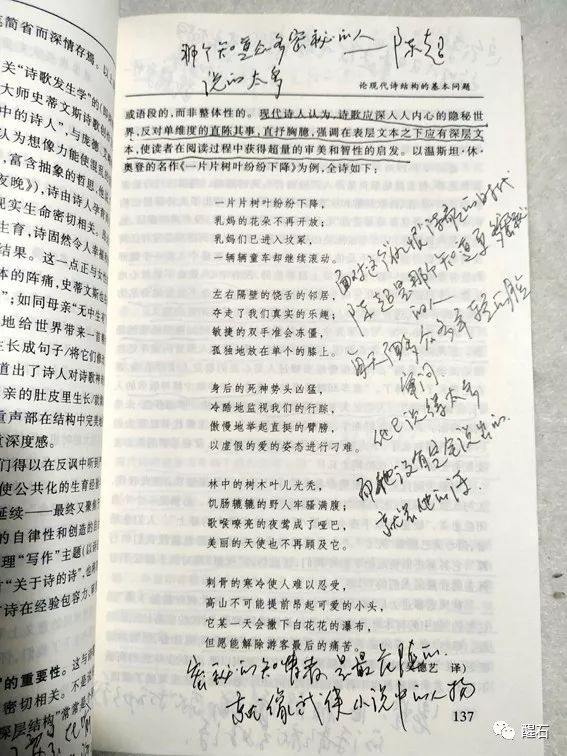 简省而深情存焉
那个知道众多密秘的人——陈超
说的太多
论现代诗结构的基本问题
或语段的,而非整体性的。现代诗人认为,诗歌应深入人内心的隐秘世
界,反对单维度的直陈其事,直抒胸臆,强调在表层文本之下应有深层文
本,使读者在阅读过程中获得超量的审美和智性的启发。以温斯坦·休·
奥登的名作《一片片树叶纷纷下降》为例,全诗如下:
一片片树叶纷纷下降,
乳妈的花朵不再开放;
乳妈们已进入坟冢,
一辆辆童车却继续滚动。
左右隔壁的饶舌的邻居,
夺走了我们真实的乐趣;
敏捷的双手准会冻僵,
孤独地放在单个的膝上。
身后的死神势头凶猛,
冷酷地监视我们的行踪,
傲慢地举起直挺的臂膀,
以虚假的爱的姿态进行刁难。
林中的树木叶儿光秃,
饥肠辘辘的野人牢骚满腹;
歌喉嘹亮的夜莺成了哑巴,
美丽的天使也不再顾及它。
刺骨的寒冷使人难以忍受,
高山不可能提前昂起可爱的小头,
它某一天会撇下白花花的瀑布,
但愿能解除游客最后的痛苦。
德艺 译)
面对这个仇恨诗歌的时代
陈超是那个知道更多密秘
的人
每天面对众多年轻的脸
审问
他已说得太多
而他没有完全说出的
就是他的诗
密秘的知情者是最危险的
就像武侠小说中的人物
137
关"诗歌发生学"的
大师史蒂文斯诗歌
中的诗人",与庞德
认为想像力能使混
富含抽象的哲思,他
夜晚》),诗由诗人孕育
现实生命密切相关。
生育,诗固然令人幸
结果。这一点正与女
体的阵痛,史蒂文斯也
";如同母亲"无中生
地给世界带来一首
生长成句子/将它们
道出了诗人对诗歌神
亲的肚皮里生长/就
重声部在结构中完美
重深度感。
们得以在反讽中听到
使公共化的生育经
延续——最终又聚焦
的自律性和创造的自
理"写作"主题(以
"关于诗的诗",也
诗在经验包容力、
"的重要性。这与
密切相关。不是说
深层结构"常常是
醒石